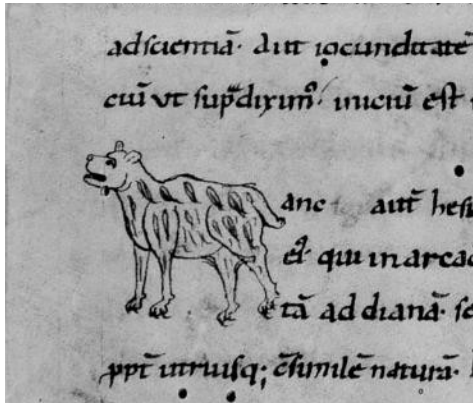 adscientiā· Aut iocunditatē
cuiū ut sup̄dixim᷒· iniciū est
anc autē hesi
et qui in arcad
tā ad dianā· se
ppt̄ utriusq; c̄similē naturā·